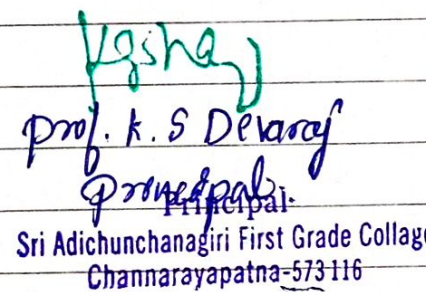 Prof. K. S Devaraj
Principal.
Principal
Sri Adichunchanagiri First Grade Collage
Channarayapatna-573 116